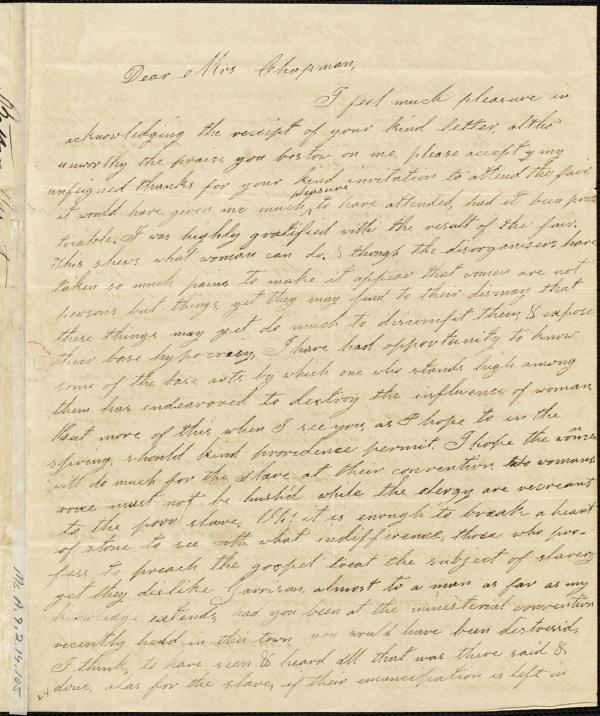 Dear Mrs Chapman,
I feel much pleasure in
acknowledging the receipt of your kind letter, altho'
unworthy the praise you bestow on me, please accept my
unfeigned thanks for your kind invitation to attend the fair
pleasure
it would have given me much to have attended, had it been prac
ticable, I was highly gratified with the result of the fair.
This shews what woman can do, & though the disorganisers have
taken so much pains to make it appear that women are not
persons but things, yet they may find to their dismay that
these things may yet do much to discomfit them, & expose
their base hypocracy, I have had opportunity to know
some of the base acts by which one who stands high among
them has endeavored to destroy the influence of woman,
But more of this when I see you, as I hope to in the
spring, should kind providence permit. I hope the women
will do much for the slave at their convention, womans
voice must not be hush'd while the clergy are recreant
to the poor slave, Oh! it is enough to break a heart
of stone to see with what indifference, those who pro-
fess to preach the gospel treat the subject of slavery
yet they dislike Garrison, almost to a man as far as my
knowledge extends, had you been at the ministerial convention
recently held in this town you would have been distress'd,
I think, to have seen & heard all that was there said &
done, alas for the slave, if their emancipation is left in
Ms.A.9.2.14.105